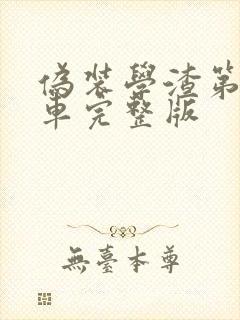 偽裝學渣第
車完整版
無臺本尊